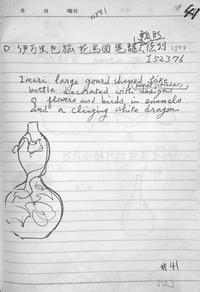 11591
44
月 日 曜日
瓢形
伊万里色絵花鳥図巻龍大徳利
I52376
Imari large gourd shaped sake
panel (window)
bottle decorated with designs
of flowers and birds, in enamels
and a clinging white dragon
#41